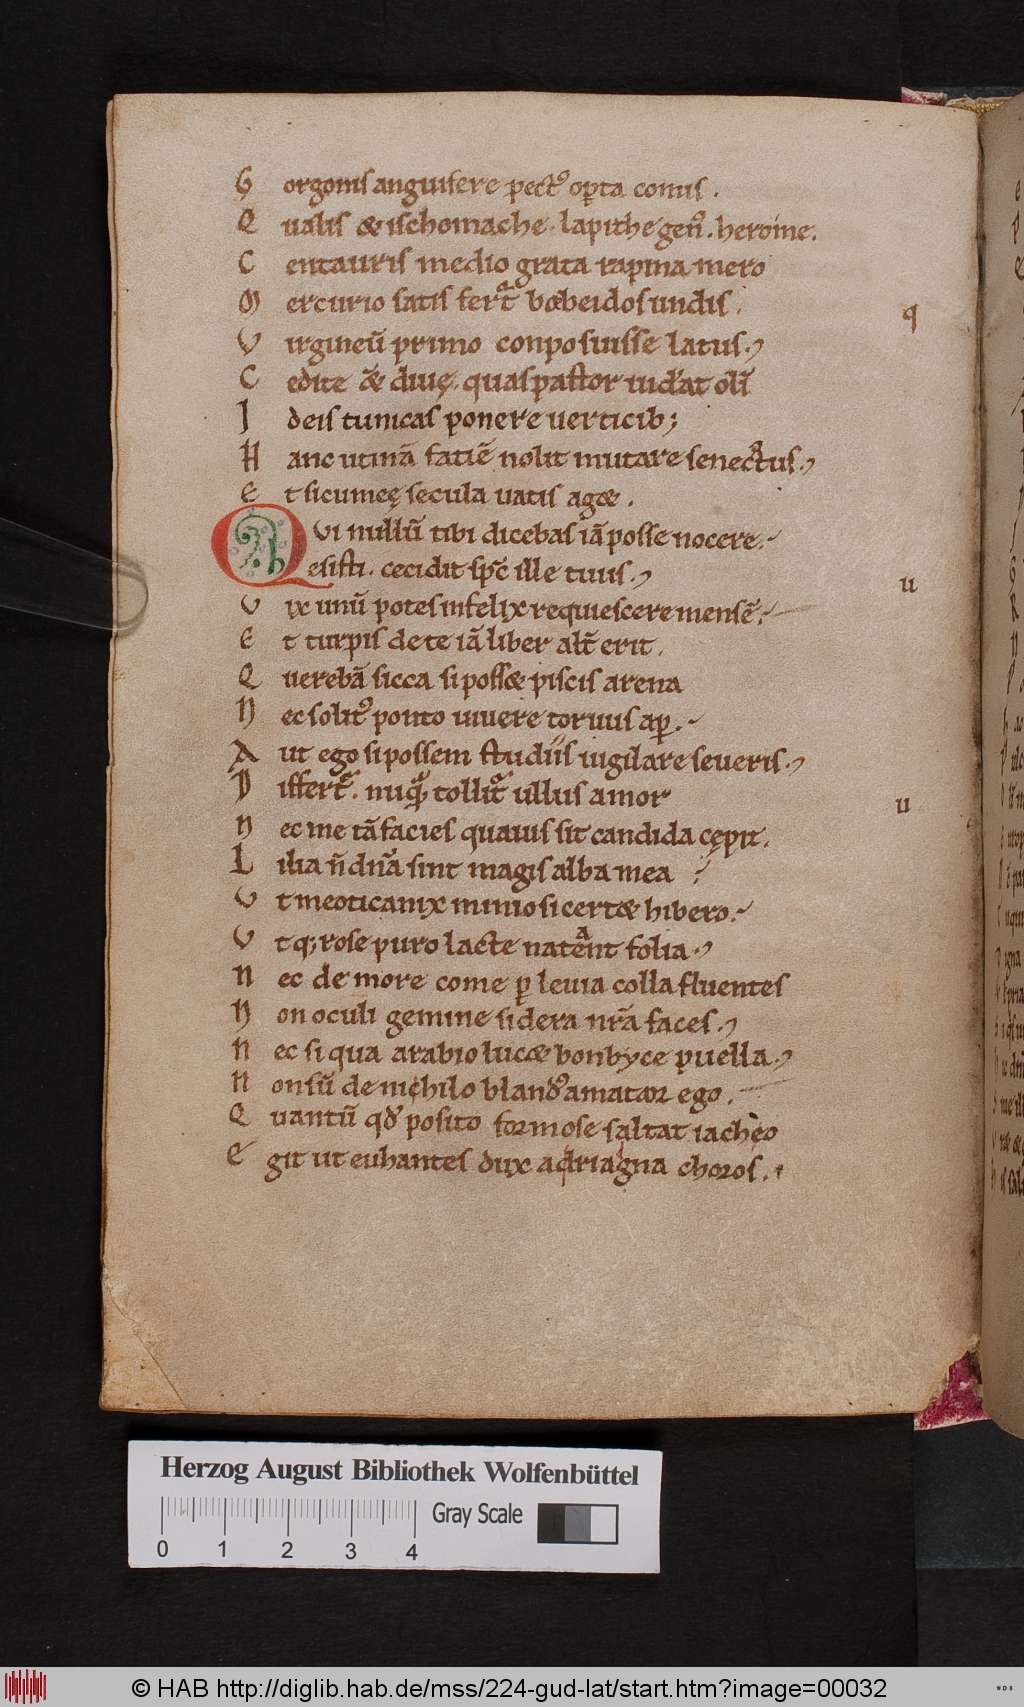 G orgonis anguifere pect᷒ op̱ta comis .
Q ualis & ischomache . lapithe gen᷒ . heroine .
C entauris medio grata rapina mero
M ercurio satis fert᷑ bobeidos undis .
V irgineū primo conposuisse latus .
C edite iā diuę . quas pastor uid̕at olī
I deis tunicas ponere uerticib;
H anc utinā fatiē nolit mutare senectus .
E t si cumeę secula uatis aga& .
Q vi nullū tibi dicebas iā posse nocere .
H esisti . cecidit sp̄c ille tuus .
V ix unū potes infelix requiescere mensē .
E t turpis de te iā liber alt̄ erit .
Q uerebā sicca si poss& piscis arena
N ec solit᷒ ponto uiuere toruus ap̱ .
A ut ego si possem studiis uigilare seueris .
D iffert᷑ . nuq̄ᷓ tollit᷑ ullus amor
N ec me tā facies quauis sit candida cępit .
L ilia ñ dn̄a sint magis alba mea
V t meotica nix minio si cert& hibero .
V t q; rose puro lacte natant folia .
N ec de more come p̱ leuia colla fluentes
N on oculi gemine sidera nr̄a faces .
N ec si qua arabio luc& bonbyce puella .
N on sū de nichilo bland᷒ amator ego .
Q uantū qđ posito formose saltat iacheo
E git ut euhantes dux adriagna choros .
q
u
u
Herzog August Bibliothek Wolfenbüttel
0 1 2 3 4 Gray Scale
© HAB http://diglib.hab.de/mss/224-gud-lat/start.htm?image=00032